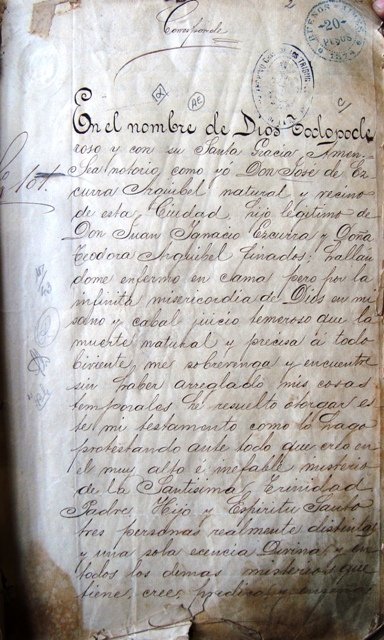 Corresponde
2
BUENOS AIRES
-20-
PESOS
1874
En el nombre de Dios Todopode
roso y con su Santa Gracia Amen-
Sea notorio como yo Don José de Ez
curra Arguibel natural y vecino
de esta Ciudad, hijo legítimo de
Don Juan Ignacio Ezcurra y Doña
Teodora Arguibel finados: hallan
dome enfermo en cama pero por la
infinita misericordia de Dios en mi
sano y cabal juicio temeroso que la
muerte natural y precisa á todo
viviente me sobrevenga y encuentre
sin haber arreglado mis cosas
temporales, he resuelto otorgar es
te mi testamento como lo hago
protestando ante todo que creo en
el muy alto é inefable misterio
de la Santisima Trinidad
Padre, Hijo y Espiritu Santo
tres personas realmente distintas
y una sola esencia Divina, y en
todos los demas misterios que
tiene, cree, predica y enseña